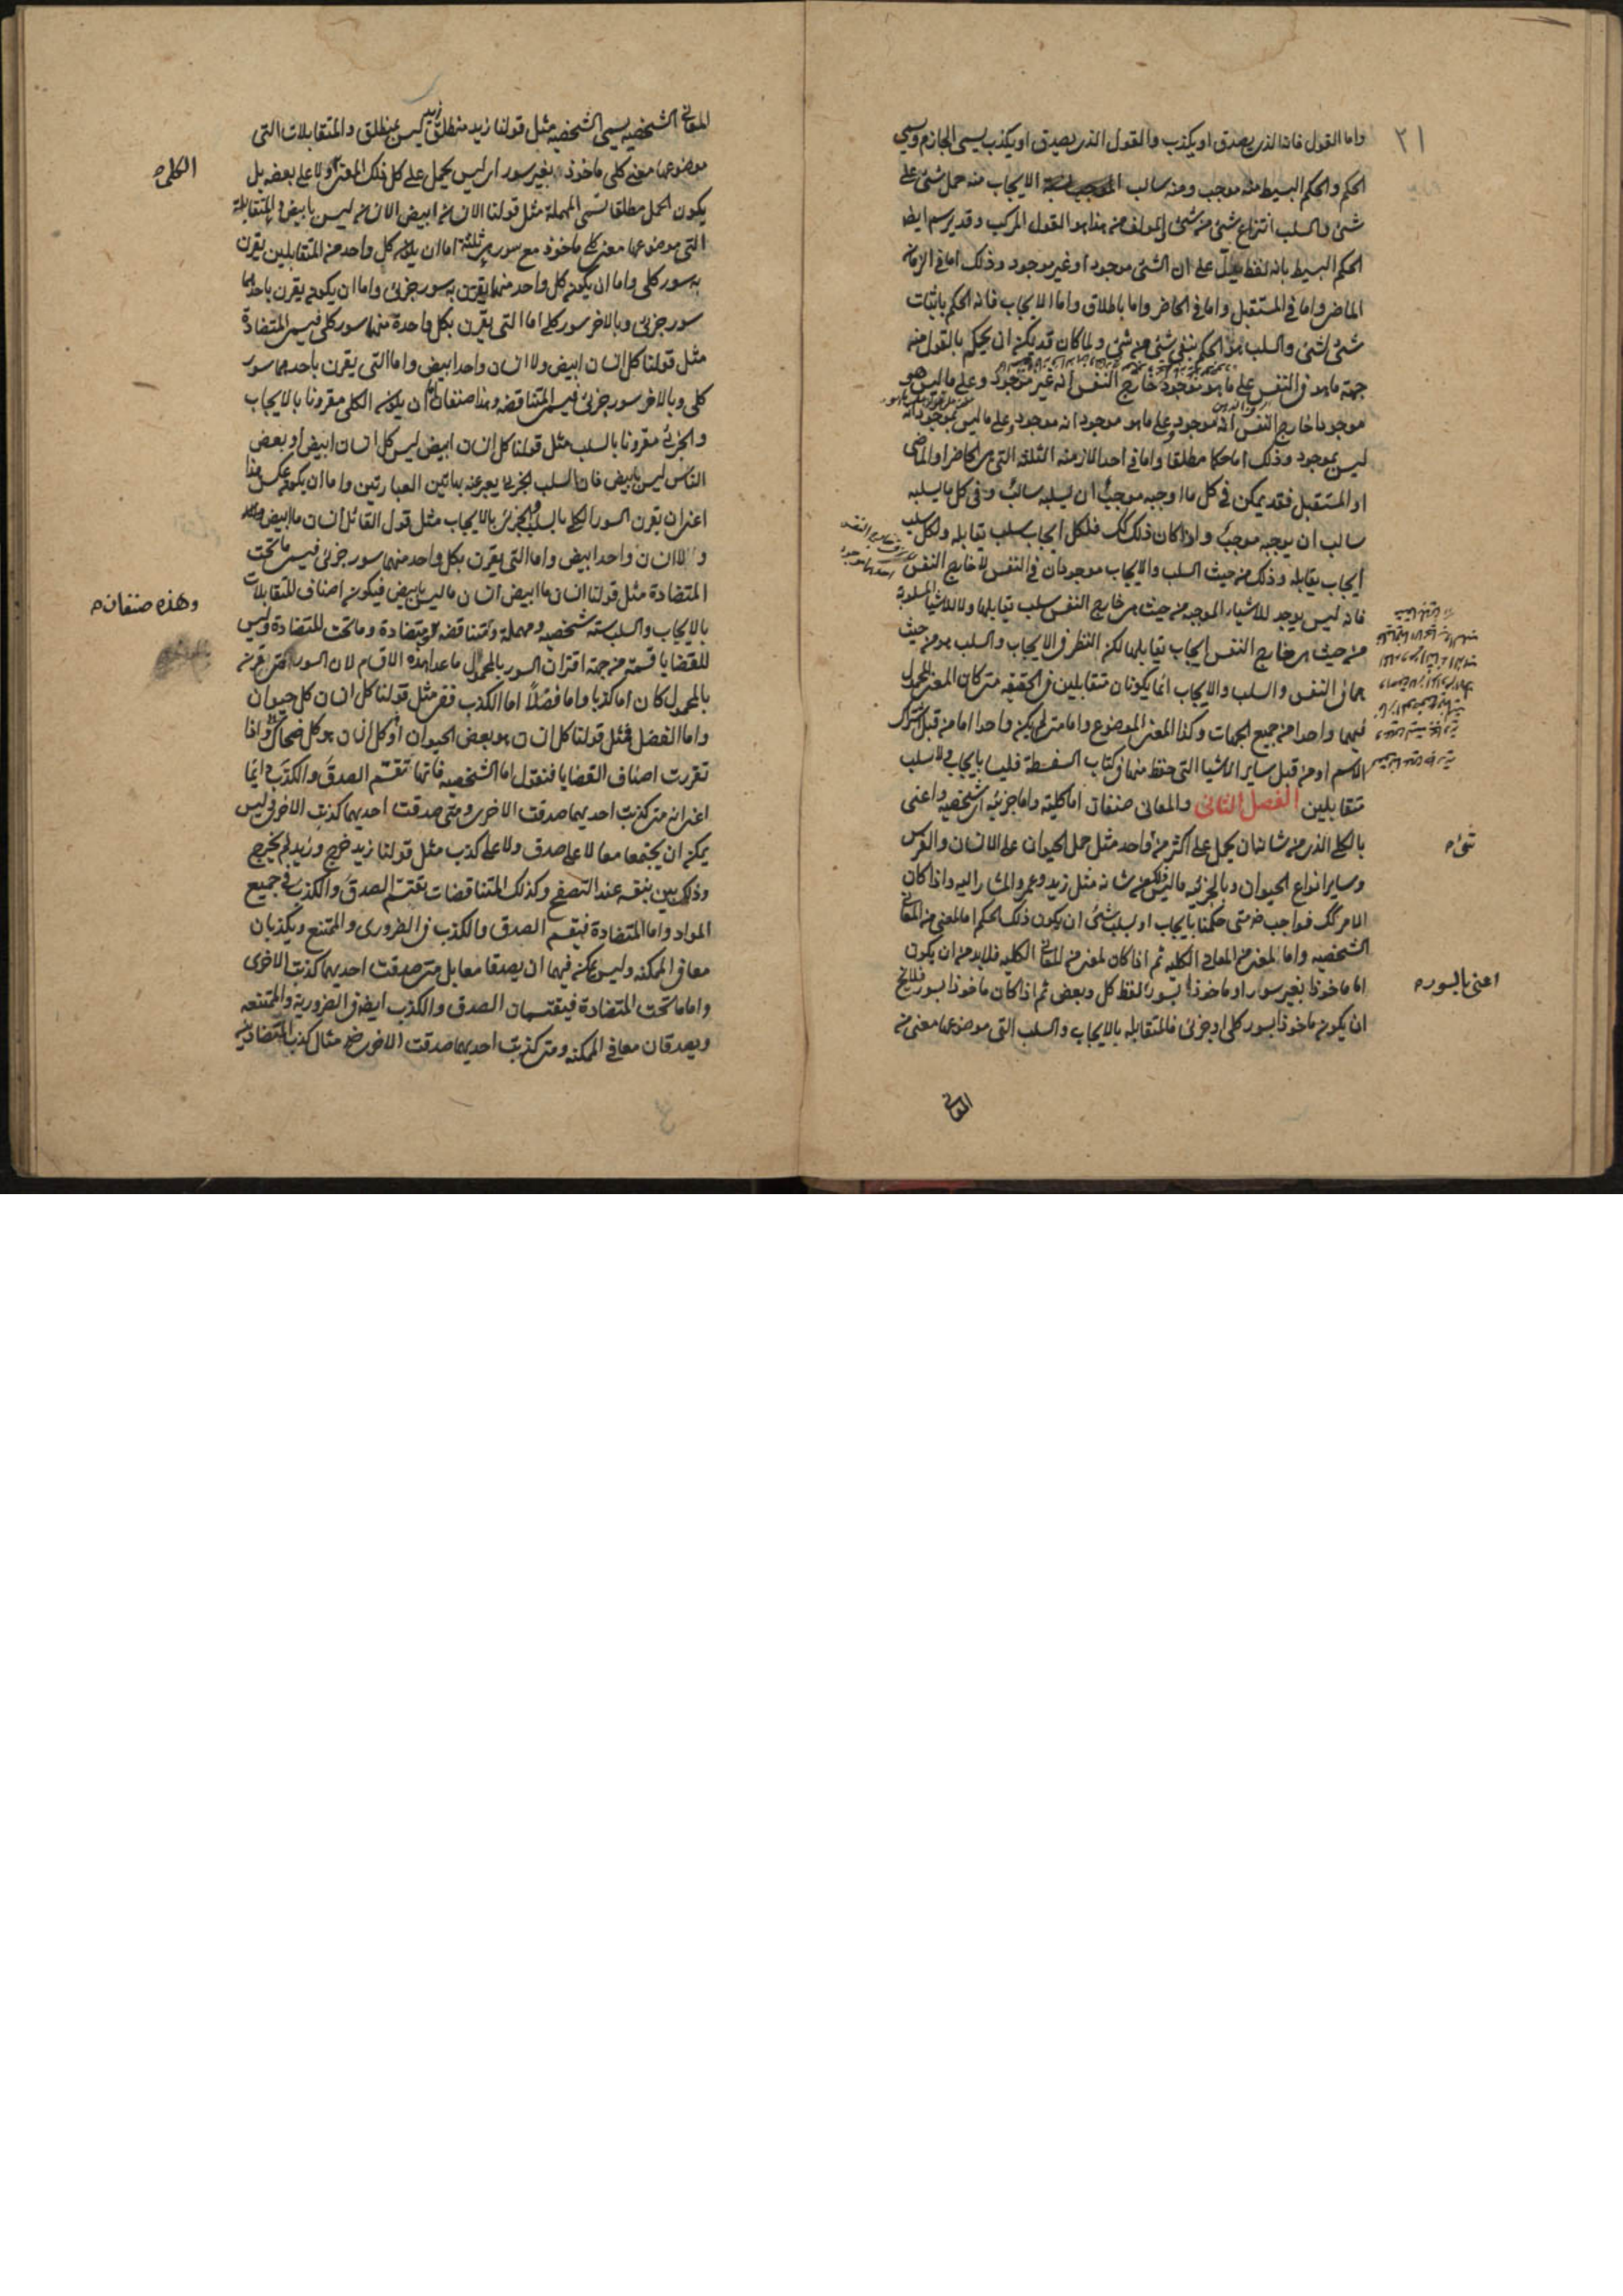 واما القول فانه الذي يصدق او يكذب والقول الذي يصدق او يكذب يسمى الجازم ويسمى
الحكم والحكم البسيط منه موجب ومنه سالب الايجاب منه حمل شئ على
شئ والسلب انتزاع شئ من شئ والمولف من هذا هو القول المركب وقد يرسم ايضا
الحكم البسيط بانه لفظ يدل على ان الشئ موجود او غير موجود وذلك اما في الزمان
الماضي واما في المستقبل واما في الحاضر واما باطلاق واما الايجاب فانه الحكم باثبات
شئ لشئ والسلب هو الحكم بنفي شئ من شئ ولما كان قد يمكن ان يحكم بالقول من
جهة ما هو في النفس على ما هو موجود خارج النفس انه غير موجود وعلى ما ليس هو
موجودا خارج النفس انه موجود وعلى ما هو موجود انه موجود وعلى ما ليس بموجود انه
ليس بموجود وذلك اما حكما مطلقا واما في احد الازمنة الثلثة التي هي الحاضر او الماضي
او المستقبل فقد يمكن في كل ما اوجبه موجب ان يسلبه سالب وفي كل ما يسلبه
سالب ان يوجبه موجب واذا كان ذلك كك فلكل ايجاب سلب يقابله ولكل سلب
ايجاب يقابله وذلك من حيث السلب والايجاب موجودان في النفس لا خارج النفس
فانه ليس يوجد للاشياء الموجبة من حيث هي خارج النفس سلب يقابلها ولا للاشياء المسلوبة
من حيث هي خارج النفس ايجاب يقابلها لكن النظر في الايجاب والسلب هو من حيث
هما في النفس والسلب والايجاب انما يكونان متقابلين في الحقيقة متى كان المعنى المحمول
فيهما واحدا من جميع الجهات وكذا المعنى الموضوع واما متى لم يكن واحدا اما من قبل اشتراك
الاسم او من قبل ساير الاشيا التي حفظ منها في كتاب السفسطة فليسا بايجاب ولا سلب
متقابلين الفصل الثاني والمعاني صنفان اما كلية واما جزئية اي شخصية واعني
بالكلي الذي من شانه ان يحمل على اكثر من واحد مثل حمل الحيوان على الانسان والفرس
وساير انواع الحيوان وبالجزئي ما ليس ذلك من شانه مثل زيد وعمرو المشار اليه واذا كان
الامر كك فواجب متى حكمنا بايجاب او سلب شئ ان يكون ذلك الحكم اما لمعنى من المعاني
الشخصية واما لمعنى من المعاني الكلية ثم اذا كان لمعنى من المعاني الكلية فلا بد من ان يكون
اما ماخوذا بغير سور او ماخوذا بسور لفظ كل وبعض ثم اذا كان ماخوذا بسور فلا يخ
ان يكون ماخوذا بسور كلي او جزئي فالمتقابلة بالايجاب والسلب التي موضوعها معنى من
المعاني
شئ
اعني بالسور
٢١
المعاني الشخصية يسمى الشخصية مثل قولنا زيد منطلق زيد ليس بمنطلق والمتقابلات التي
موضوعها معنى كلي ماخوذ بغير سور اي ليس يحمل على كل ذلك المعنى ولا على بعضه بل
يكون الحمل مطلقا تسمى المهملة مثل قولنا الانسان ابيض الانسان ليس بابيض والمتقابلة
التي موضوعها معنى كلي ماخوذ مع سور هي ثلثة اما ان يكون كل واحد من المتقابلين يقرن
به سور كلي واما ان يكون كل واحد منهما يقرن به سور جزئي واما ان يكون يقرن باحدهما
سور جزئي وبالاخر سور كلي اما التي يقرن بكل واحدة منهما سور كلي فيسمى المتضادة
مثل قولنا كل انسان ابيض ولا انسان واحد ابيض واما التي يقرن باحدهما سور
كلي وبالاخر سور جزئي فيسمى المتناقضة وهذا صنفان اما ان يكون الكلي مقرونا بالايجاب
والجزئي مقرونا بالسلب مثل قولنا كل انسان ابيض ليس كل انسان ابيض او بعض
الناس ليس بابيض فان السلب الجزئي يعبر عنه بهاتين العبارتين واما ان يكون عكس هذا
اعني ان يقرن السور الكلي بالسلب والجزئي بالايجاب مثل قول القائل انسان ما ابيض
ولا انسان واحد ابيض واما التي يقرن بكل واحد منهما سور جزئي فيسمى ما تحت
المتضادة مثل قولنا انسان ما ابيض انسان ما ليس بابيض فيكون اصناف المتقابلات
بالايجاب والسلب ستة شخصية ومهملة ومتناقضة ومتضادة وما تحت المتضادة وليس
للقضايا قسمة من جهة اقتران السور بالمحمول ما عدا هذه الاقسام لان السور متى قرن
بالمحمول كان اما كذبا واما فضلا اما الكذب فمثل قولنا كل انسان كل حيوان
واما الفضل فمثل قولنا كل انسان هو بعض الحيوان او كل انسان هو كل ضحاك واذا
تقررت اصناف القضايا فنقول اما الشخصية فانها تقتسم الصدق والكذب دائما
اعني انه متى كذبت احديهما صدقت الاخرى ومتى صدقت احديهما كذبت الاخرى ليس
يمكن ان يجتمعا معا لا على صدق ولا على كذب مثل قولنا زيد خرج وزيد لم يخرج
وذلك بين بنفسه عند التصفح وكذلك المتناقضات تقتسم الصدق والكذب في جميع
المواد واما المتضادة فيقتسم الصدق والكذب في الضروري والممتنع ويكذبان
معا في الممكنة وليس يمكن فيهما ان يصدقا معا بل متى صدقت احديهما كذبت الاخرى
واما ما تحت المتضادة فيقتسمان الصدق والكذب ايضا في الضرورية والممتنعة
ويصدقان معا في الممكنة ومتى كذبت احديهما صدقت الاخرى مثال كذب المتضادين
الكلي
وهذه صنفان